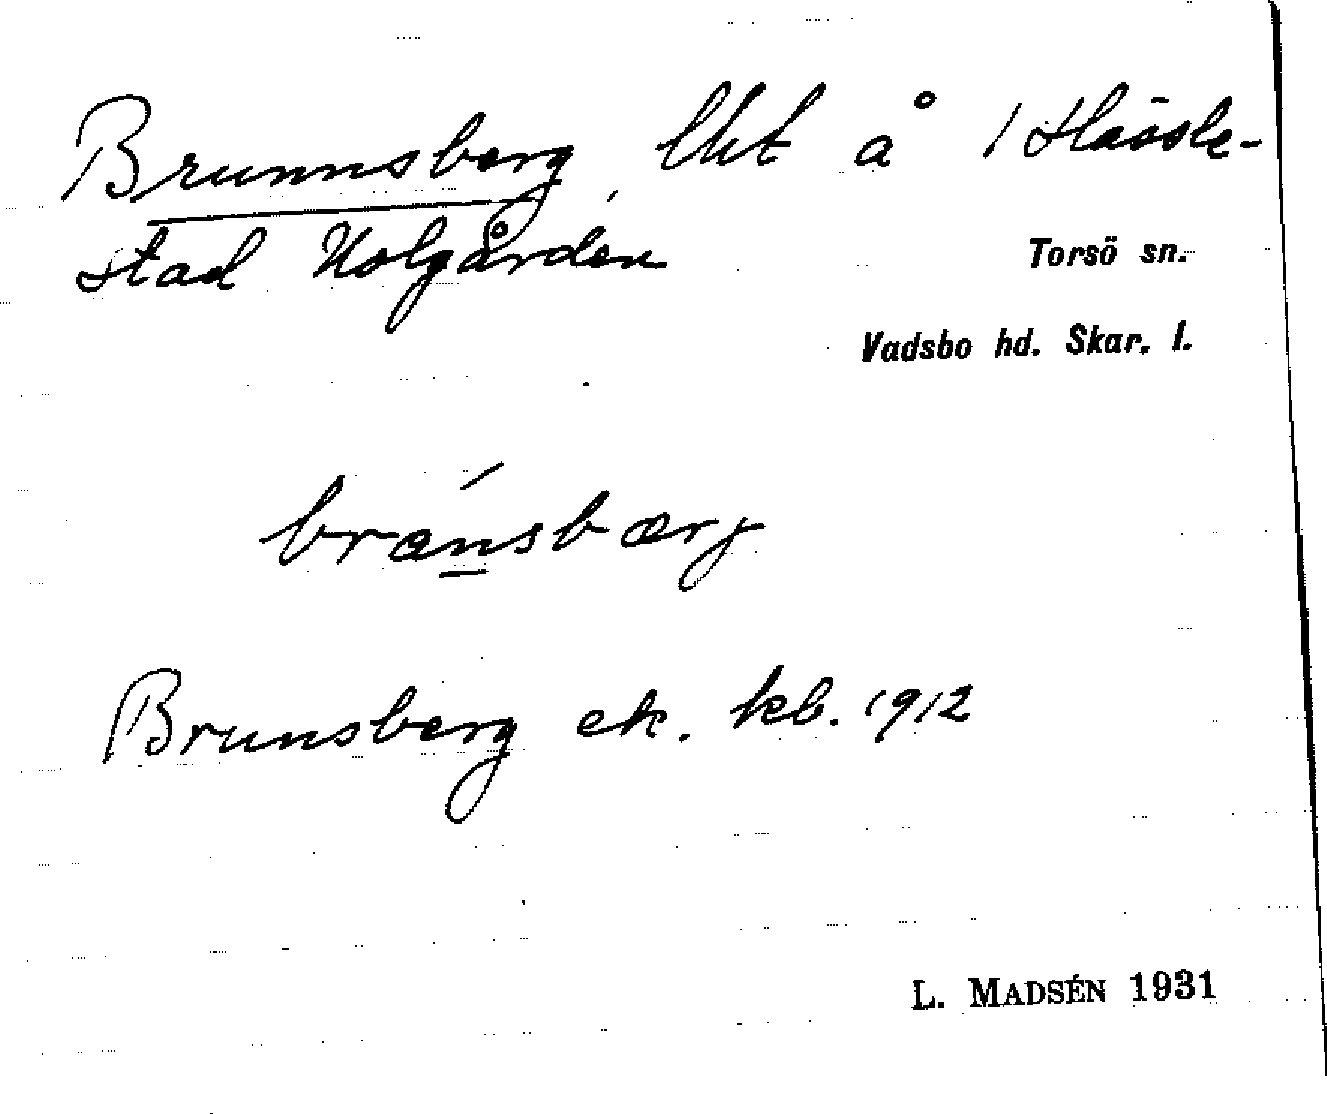 Brunnsberg, lht å 1 Hassle-
stad Nolgården
Torsö sn.
Vadsbo hd. Skar. l.
bránsbærg
Brunsberg ek. kb. 1912
L. MADSÉN 1931